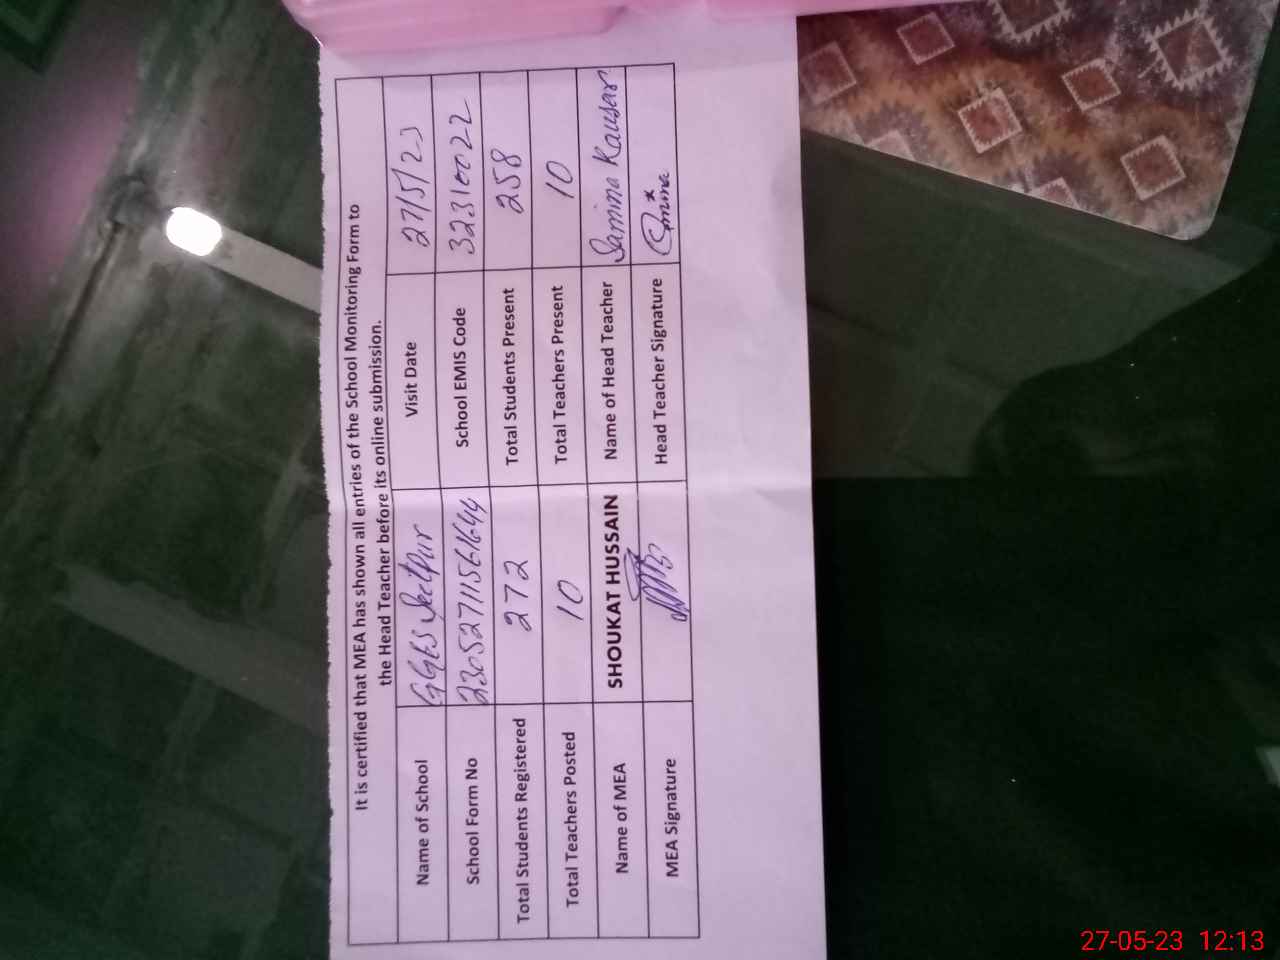 It is certified that MEA has shown all entries of the School Monitoring Form to
the Head Teacher before its online submission.
Name of School GGES Seetpur Visit Date 27/5/23
School Form No 23052711561644 School EMIS Code 32310022
Total Students Registered 272 Total Students Present 258
Total Teachers Posted 10 Total Teachers Present 10
Name of MEA SHOUKAT HUSSAIN Name of Head Teacher Samina Kausar
MEA Signature Head Teacher Signature
27-05-23 12:13